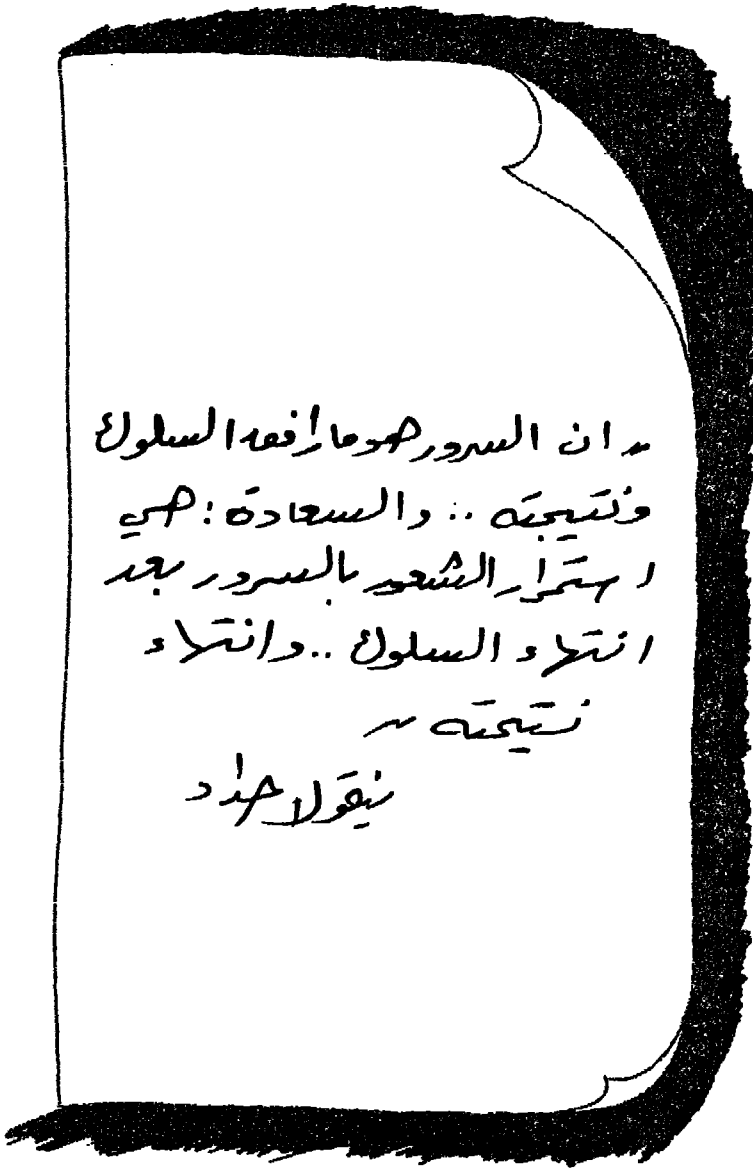 " ان السرور هو ما رافق السلوك
ونتيجته .. والسعادة : هي
استمرار الشعور بالسرور بعد
انتهاء السلوك .. وانتهاء
نتيجته "
نيقولا حداد